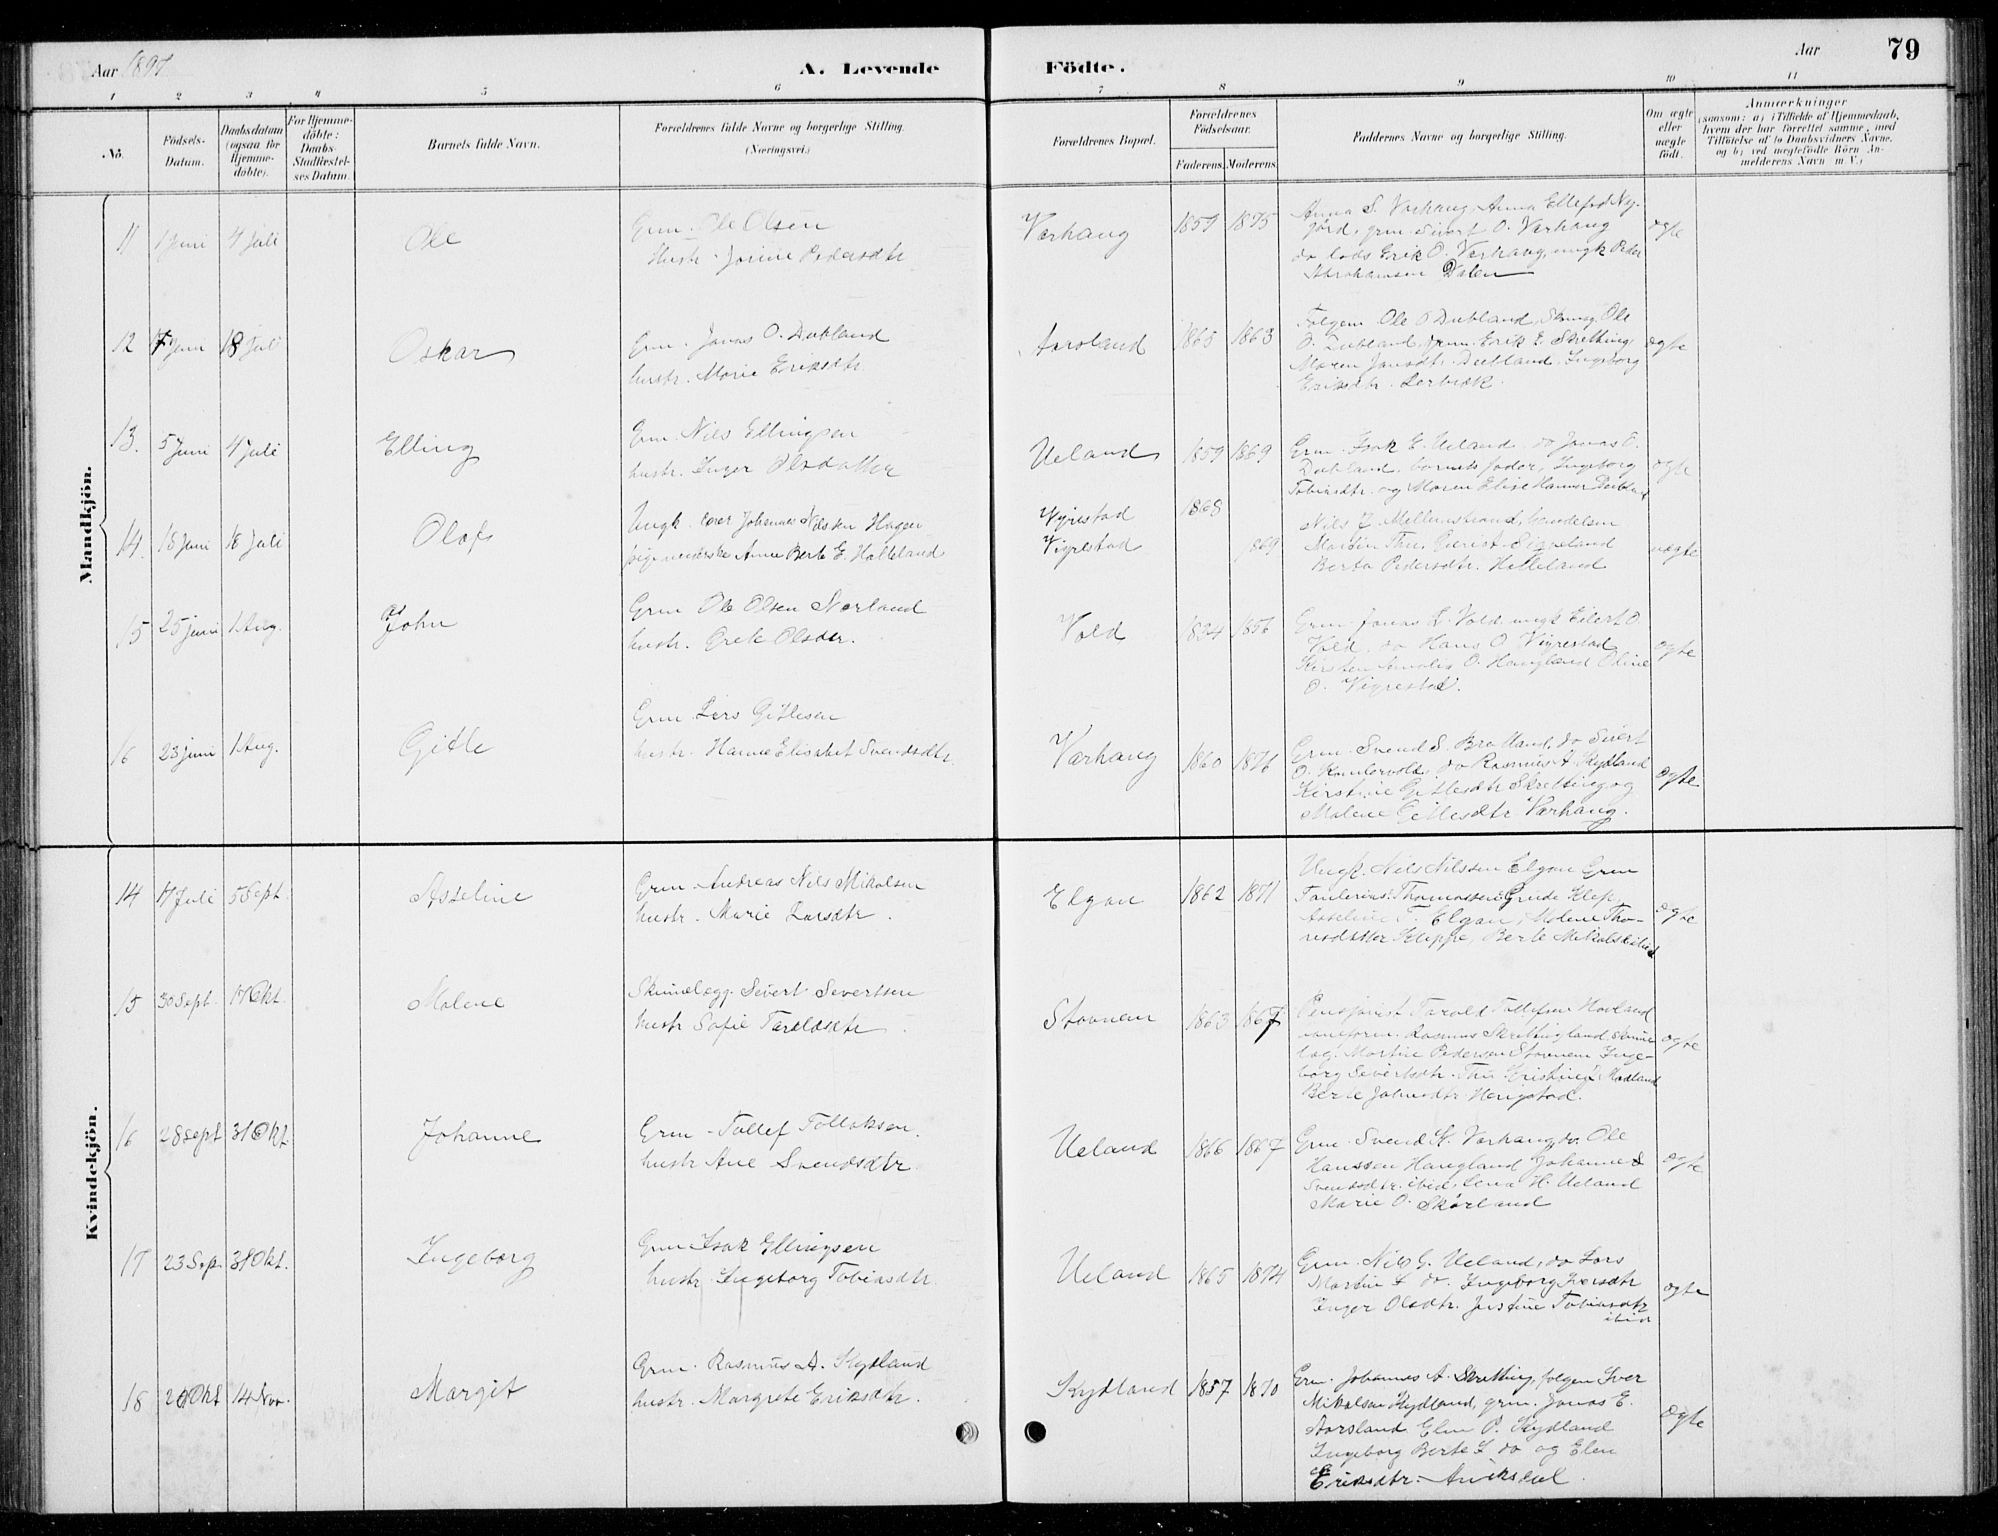 Aar 1897
A. Levende Födte.
Aar
79
1 2 3 4 5 6 7 8 9 10 11
No.
Födsels-Datum.
Daabsdatum (ogsaa for Hjemme-döbte).
For Hjemme-döbte: Daabs-Stadfæstel-ses Datum.
Barnets fulde Navn.
Forældrenes fulde Navne og borgerlige Stilling. (Næringsvei.)
Forældrenes Bopæl.
Forældrenes Födselsaar.
Faderens. Moderens.
Faddernes Navne og borgerlige Stilling.
Om ægte eller uægte födt.
Anmærkninger
(saasom: a) i Tilfælde af Hjemmedaab, hvem der har forrettet samme, med Tilföielse af to Daabsvidners Navne, og b) ved uægtefödte Börn Anmelderens Navn m. V.)
Mandkjön.
11 1 Juni 4 Juli Ole
Grm. Ole Olsen
Hustr. Jorine Pedersdtr
Varhaug 1857 1875
Anna S. Varhaug, Anna Ellefsd Ny-
gård, grm. Sivert O. Varhaug
do lods Erik O. Varhaug, ungk Peder
Abrahamsen Dalen
ægte
12 7 Juni 18 Juli Oskar
Grm. Jonas O. Dubland
hustr. Marie Eriksdtr.
Aarsland 1865 1863
Følgem Ole O Dubland, Ole
O. Dubland, grm. Erik E. Skretting,
Maren Jonsdtr. Dubland, Ingeborg
Eriksdtr. Lerbræk.
ægte
13. 5 Juni 4 Juli Elling
Grm. Nils Ellingsen
hustr. Inger Olsdatter
Ueland 1859 1869
Grm. Isak E. Ueland, do Jonas O.
Dubland, barnets fader, Ingeborg
Tobiasdtr. og Maren Elise Dubland
ægte
14. 18 Juni 18 Juli Olaf
Ungk. Johannes Nilssen Hagen
pigemenneske Anne Berte E. Halleland
Vigrestad 1868
Vigrestad 869
Nils J. Mellemstrand, handelsm
Martin Thu, Sigveland
Berta Pedersdtr. Helleland
uægte
15 25 juni 1 Aug. John
Grm Ole Olsen Nærland
hustr. Grete Olsdtr.
Vold 1834 1856
Grm. Jonas L. Vold ungk Eilert O
Vold, do Hans O. Vigrestad
Kirsten Amalie O. Haugland Oline
O. Vigrestad.
ægte
16 23 juni 1 Aug. Gitle
Grm. Lars Gitlesen
hustr. Hanne Elisabet Svendsdtr.
Varhaug 1860 1876
Grm. Svend S. Bratland, do Sivert
O. do Rasmus A. Kydland
Kirstine Gitlesdtr Skretting og
Malene Gitlesdtr Varhaug.
ægte
Kvindekjön.
14 17 Juli 5 Sept. Asseline
Grm. Andreas Nils Mikalsen
hustr. Marie Larsdtr.
Elgan 1862 1871
Ungk. Nils Nilssen Elgan Grm
Thomassen Grude Klep
Asseline T. Elgan, Malene Tho-
Kleppe, Berte Mikalsd ibid
ægte
15 30 Sept. 17 Okt. Malene
Skindlægg. Sivert Sivertsen
hustr Sofie Taraldsdtr.
Stavnem 1863 1867
Pensjonist Tarald Tollefsen Hovland
Rasmus Skrettingland
Martin Pedersen Stavnem Inge-
borg Sivertsdtr. Thu Kristine J. Madland
Berte Jonasdtr Haugstad.
ægte
16 28 Sept 31 Okt. Johanne
Grm. Tollef Tollaksen.
hustr Ane Svendsdtr.
Ueland 1866 1867
Grm. Svend K. Varhaug, do. Ole
Hanssen Haugland Johanne S
Svendsdtr. ibid, Lena H. Ueland
Marie O. Skårland
ægte
17 23 Sep. 31 Okt. Ingeborg
Grm Isak Ellingsen
hustr. Ingeborg Tobiasdtr.
Ueland 1865 1874
Grm. Nils G. Ueland, do Lars
Martin L do. Ingeborg Iversdtr
Inger Olsdtr. Justine Tobiasdtr
ibid
ægte
18 20 Okt 14 Nov. Margit
Grm. Rasmus A. Kydland
hustr. Margrete Eriksdtr.
Kydland 1857 1870
Grm. Johannes A. Skretting, følgem Iver
Mikalsen Kydland, grm. Jonas E.
Aarsland Elen P. Kydland
Ingeborg Berte L do og Elen
Eriksdtr. Aniksdal.
ægte